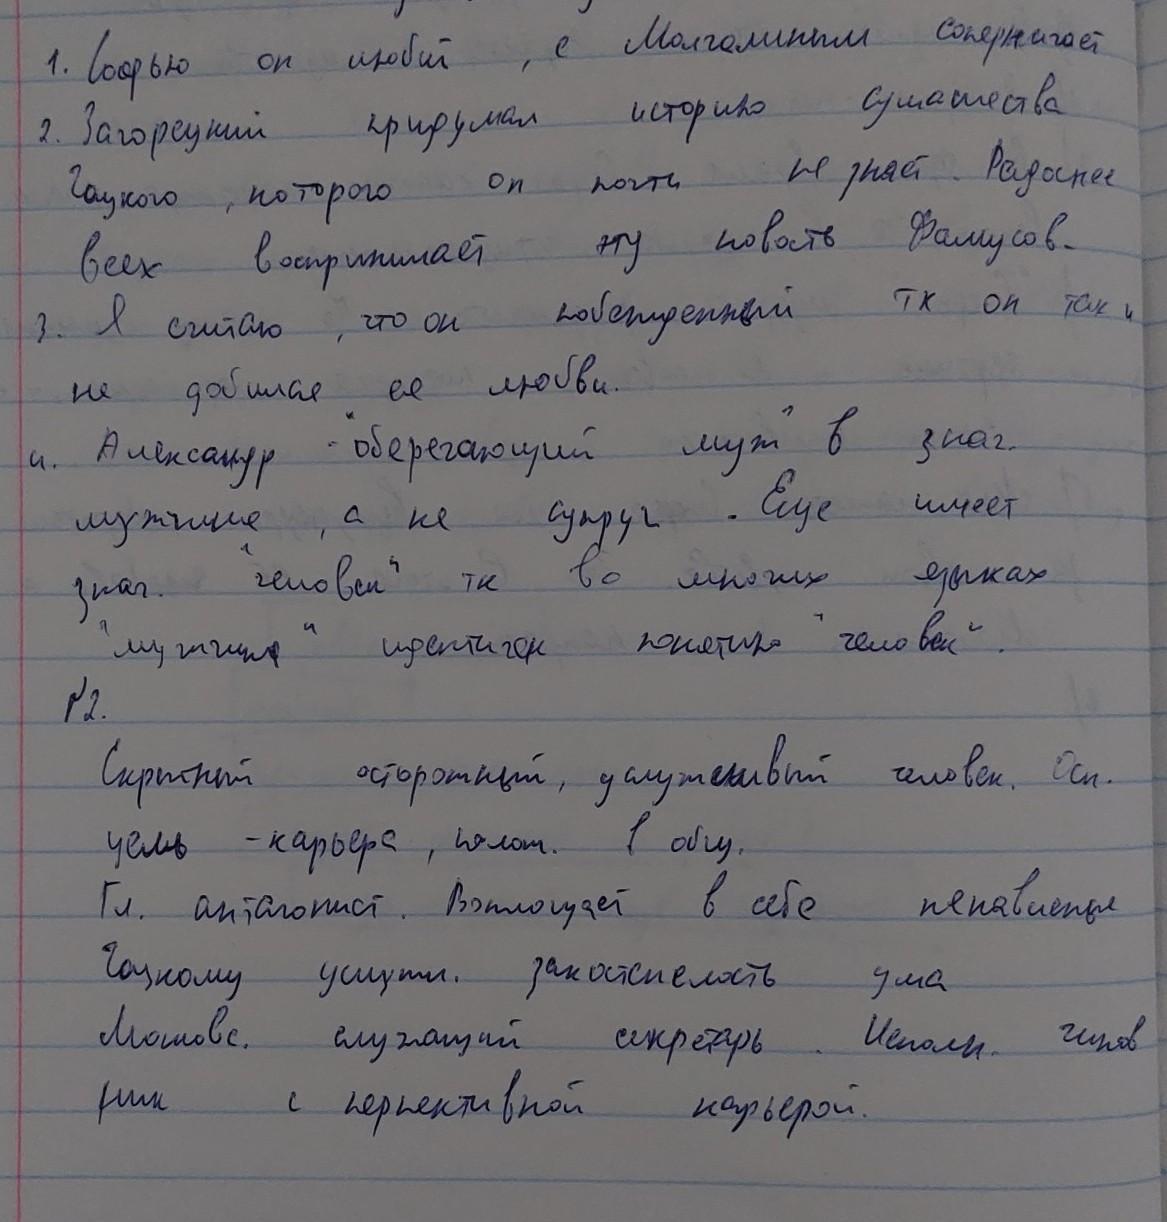 1. Софью он любит, с Молчалиным соперничает
2. Загорецкий придумал историю сумашества
Чацкого, которого он почти не знает. Радоснее
всех воспринимает эту новость Фамусов.
3. Я считаю, что он побежденный тк он так и
не добился ее любви.
4. Александр - "оберегающий муж" в знач.
мужчина, а не супруг. Еще имеет
знач. "человек" тк во многих языках
"мужчина" идентичен понятию "человек".
№2.
Скрытный осторожный, услужливый человек. Осн.
цель - карьера, полож. в общ.
Гл. антагонист. Воплощает в себе ненавистные
Чацкому закостенелость ума
Московс. служащий секретарь. Исполн. чинов
ник с перпективной карьерой.